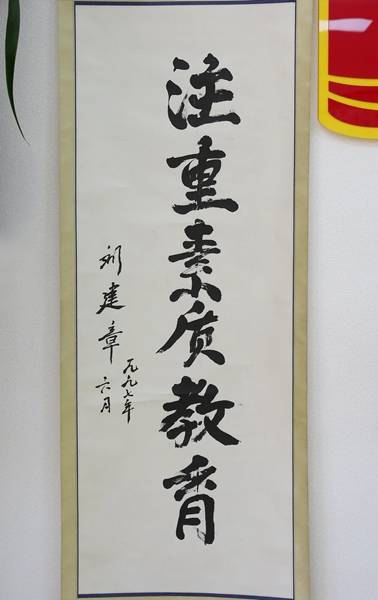 注重素质教育
刘建章
一九九七年
六月